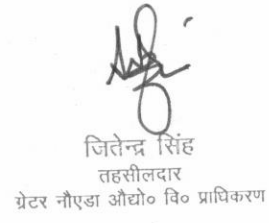 जितेन्द्र सिंह
तहसीलदार
ग्रेटर नौएडा औद्यो० वि० प्राधिकरण